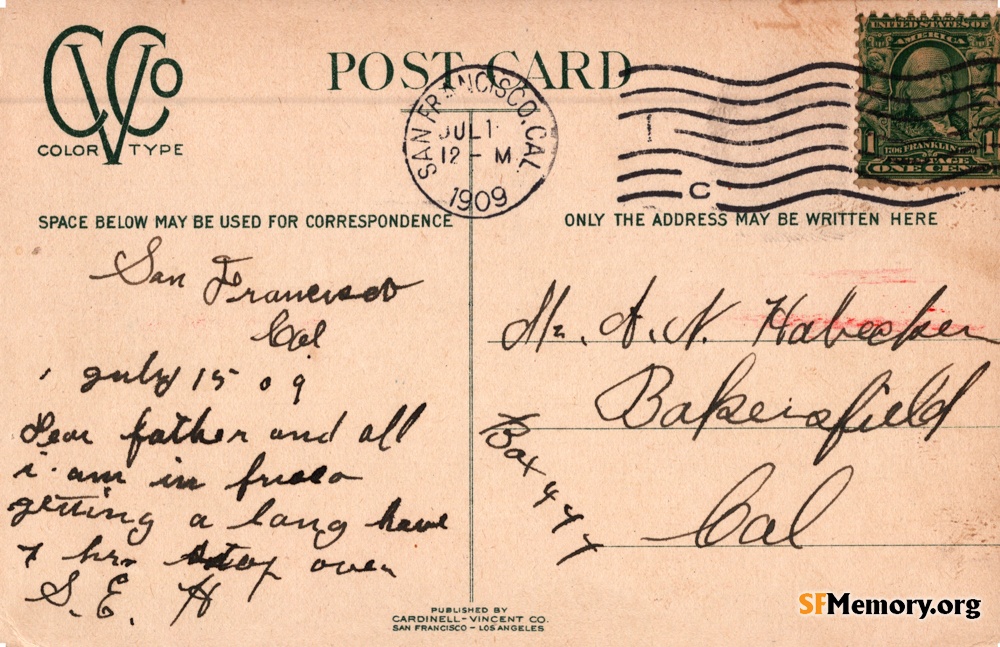 CVCCo
COLOR TYPE
POST CARD
SAN FRANCISCO, CAL.
JUL 1
12 - M
1909
C
UNITED STATES OF
AMERICA
1706 FRANKLIN
POSTAGE
1 ONE CENT 1
SPACE BELOW MAY BE USED FOR CORRESPONDENCE
San Francisco
Cal
July 15 09
Dear father and all
i am in frisco
getting a long have
7 hrs stop over
S. E. H
ONLY THE ADDRESS MAY BE WRITTEN HERE
Mr. A. N. Habecker
Bakersfield
Box 444
Cal
PUBLISHED BY
CARDINELL-VINCENT CO.
SAN FRANCISCO - LOS ANGELES
SFMemory.org